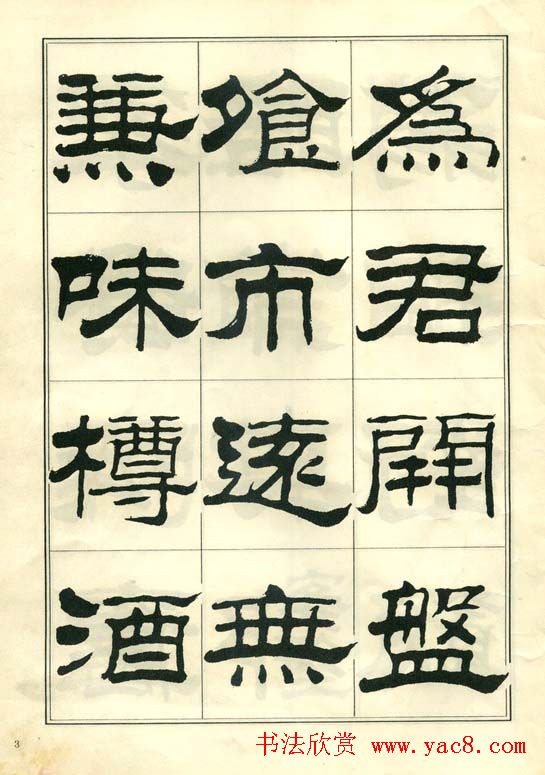 為君開盤
飧市遠無
兼味樽酒
3
书法欣赏 www.yac8.com